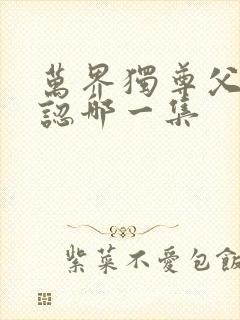 萬界獨尊父
認那一集
紫菜不愛包飯